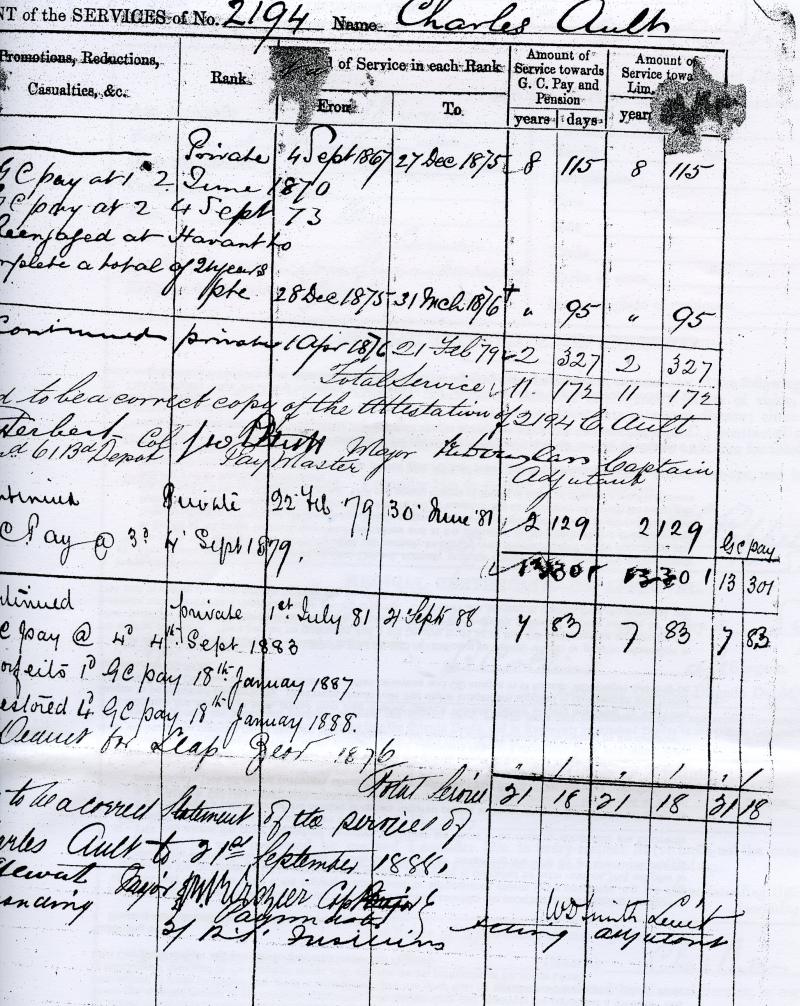 NT of the SERVICES of No. 2194 Name Charles Ault
Promotions, Reductions, Casualties, &c.
Rank
of Service in each Rank
From
To
Amount of Service towards G. C. Pay and Pension
years days
Amount of Service towa
Lim.
year
Private 4 Sept 1867 27 Dec 1875 8 115 8 115
GC pay at 1 2 June 1870
GC pay at 2 4 Sept 73
Reengaged at Havant to
mplete a total of 21 years
pte 28 Dec 1875 31 Mch 1876 " 95 " 95
Continued private 1 Apr 1876 21 Feb 79 2 327 2 327
Total Service 11 172 11 172
d to be a correct copy of the Attestation of 2194 C Ault
Herbert Col Major Captain
61 Bd Depot Pay Master Adjutant
ntinued Private 22 Feb 79 30 June '81 2 129 2 129
C Pay @ 3d 4 Sept 1879. GC pay
13 301 13 301 13 301
ntinued private 1st July 81 21 Sept 88 7 83 7 83 7 83
C pay @ 4d 4th Sept 1883
orfeits 1d GC pay 18th January 1887
estored 4d GC pay 18th January 1888.
Deduct for Leap Year 1876 " 1 " 1 " 1
Total Service 21 18 21 18 21 18
to be a correct Statement of the services of
arles Ault to 21st September 1888.
Major
anding Paymaster
Acting Adjutant
WD Smith Lieut